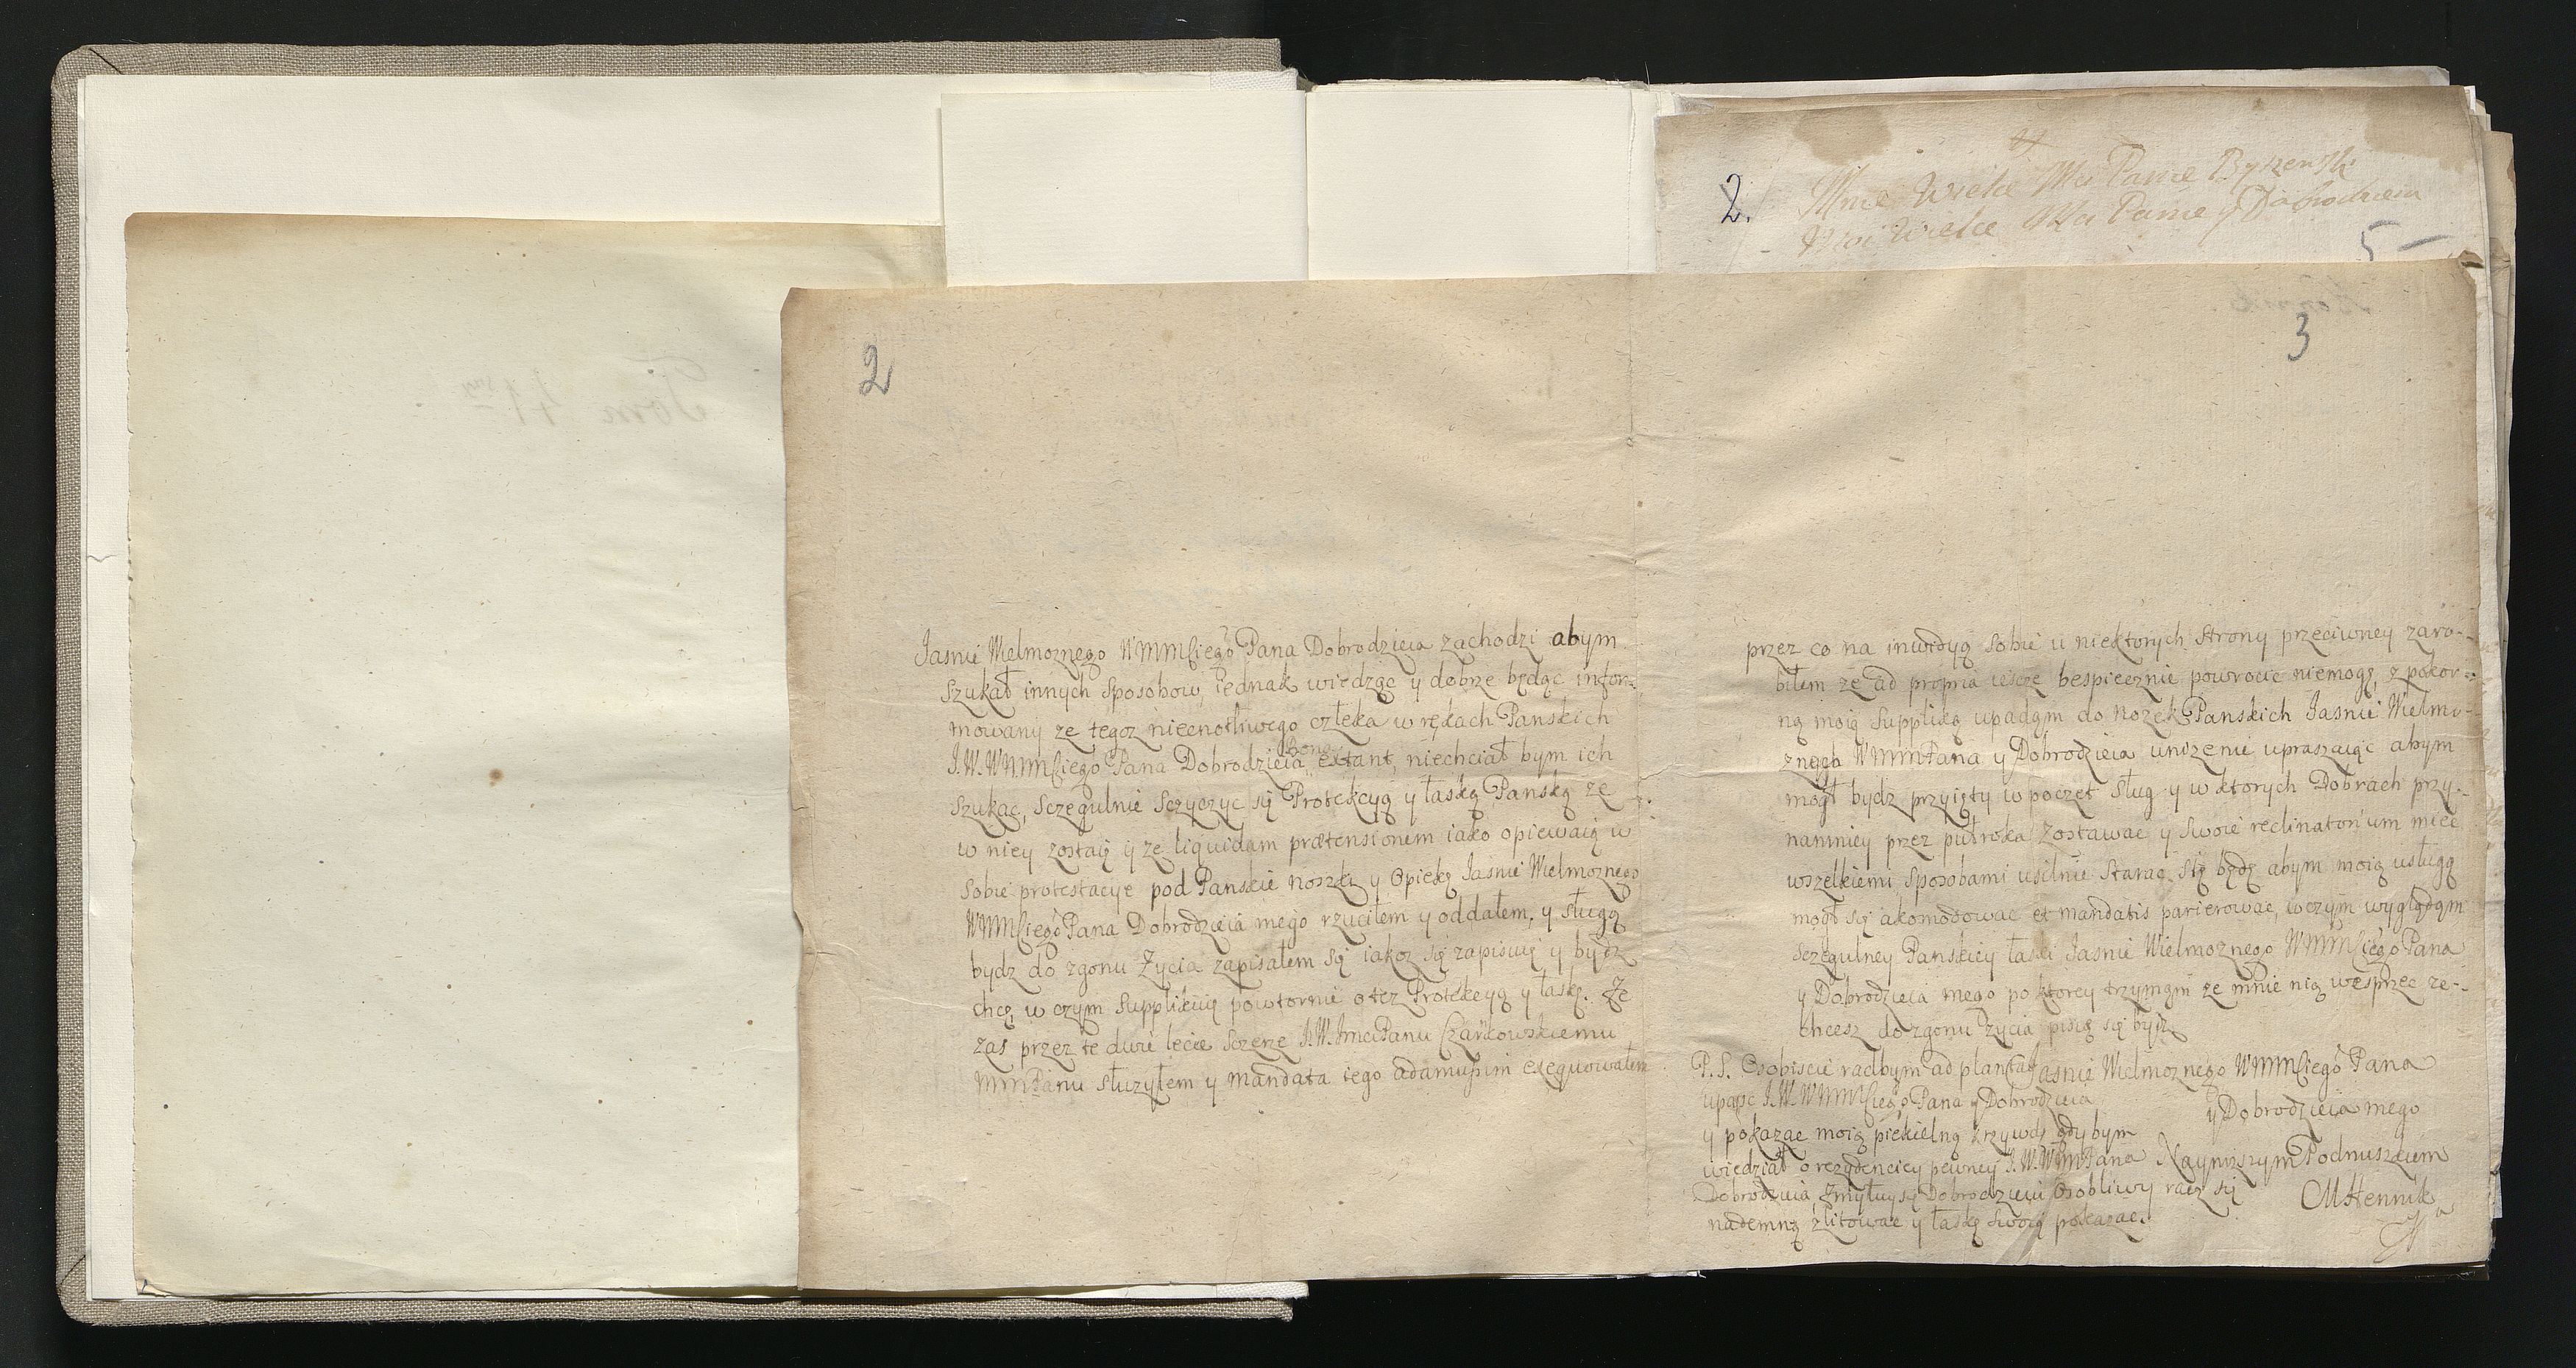 2
Jasnie Wielmoznego WMMCiego Pana Dobrodzieia zachodzi abym
szukał innych sposobow, iednak wiedząc y dobrze będąc infor-
mowany ze tegoz niecnotliwego człeka w rękach Panskich
J.W. WMMCiego Pana Dobrodzieia bona extant, niechciał bym ich
szukac, sczegulnie sczyczyc się Protekcyą y łaską Panską ze
w niey zostaię y ze liquidam prætensionem iako opiewaią w
sobie protestacye pod Panskie noszki y Opiekę Jasnie Wielmoznego
WMMCiego Pana Dobrodzieia mego rzuciłem y oddałem, y sługą
bydz do zgonu Zycia zapisałem się iakoz się zapisuię y bydz
chcę, w czym supplikuię powtornie o tez Protekcyą y łaskę. Ze
zas przez te dwie lecie sczerze J.W. Jmci Panu Czarkowskiemu
MMPanu słuzyłem y mandata iego adamussim exequowałem
3
przez co na inwidyą sobie u niektorych strony przeciwney zaro-
biłem ze ad propria iescze bespiecznie powrocic niemogę, z pokor-
ną moią suppliką upadam do nozek Panskich Jasnie Wielmo-
znego WMMPana y Dobrodzieia unizenie upraszaiąc abym
mogł bydz przyięty w poczet sług y w ktorych Dobrach przy-
namniey przez pułroka zostawac y swoie reclinatorium miec
wszelkiemi sposobami usilnie starac się będę abym moią usługą
mogł się akomodowac et mandatis parierowac, w czym wyglądam
sczegulney Panskiey łaski Jasnie Wielmoznego WMMCiego Pana
y Dobrodzieia mego po ktorey trzymam ze mnie nią wesprzec ze-
chcesz do zgonu zycia piszę się bydz
Jasnie Wielmoznego WMMCiego Pana
y Dobrodzieia mego
Naynizszym Podnuszkiem
MHennik
P.S. Osobiscie radbym ad plantas
upasc J.W. WMMCiego Pana y Dobrodzieia
y pokazac moią piekielną krzywdę gdybym
wiedział o rezydenciey pewney J.W. WMPana
Dobrodzieia, zmiłuy się Dobrodzieiu Osobliwy racz się
nademną zlitowac y łaskę swoią pokazac.
2.
Wielce Mci Panie
Wielce Mci Panie y Dobrodzieiu
5
Tom 41